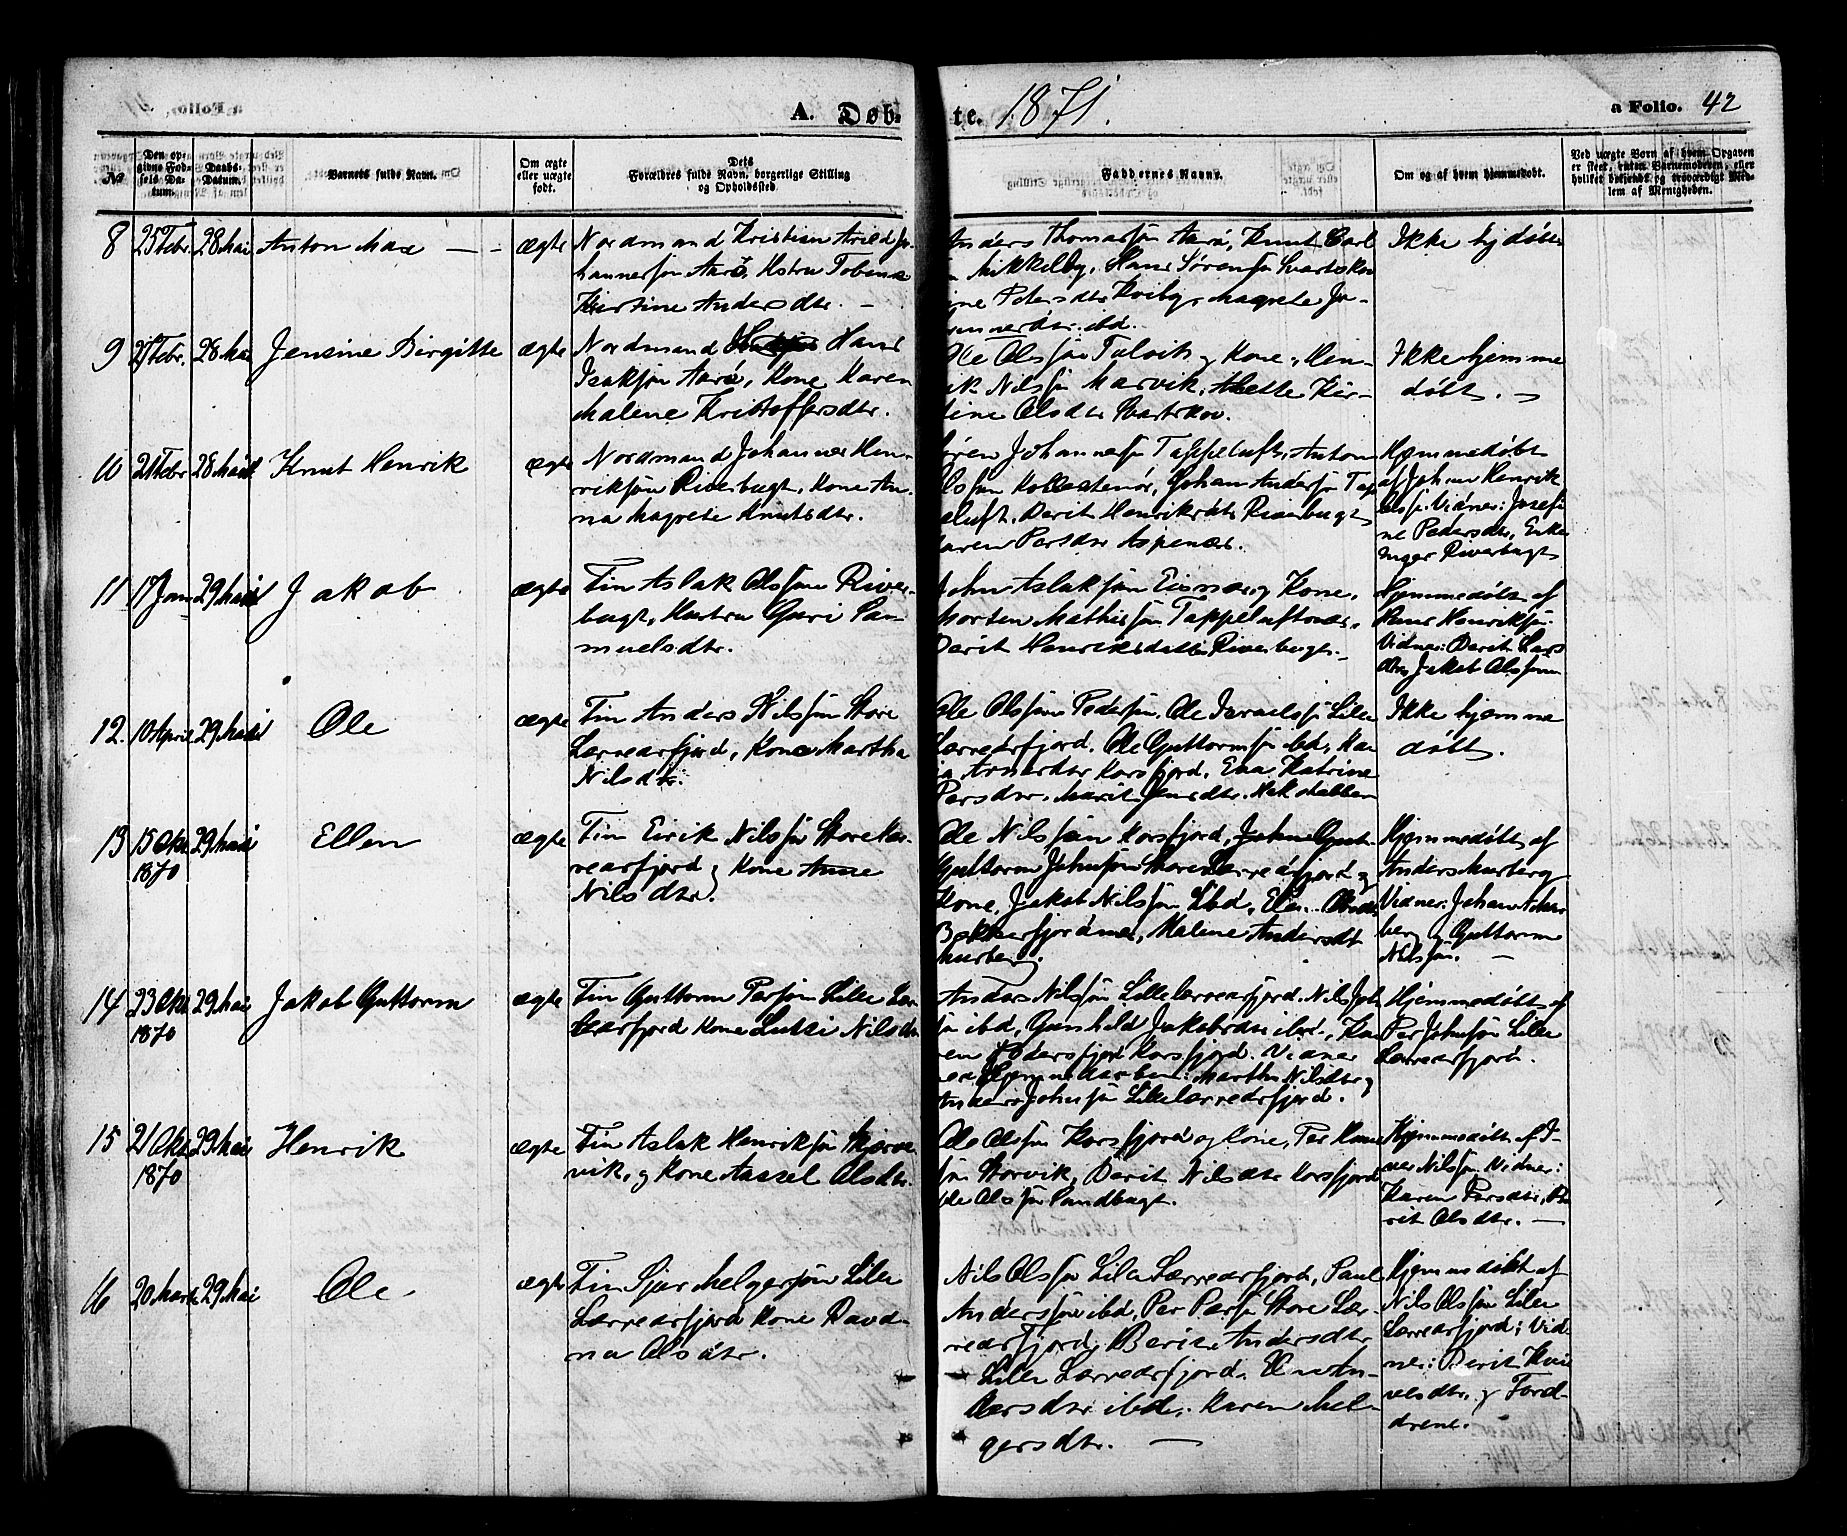 A. Døb-te. 1871. a Folio. 42
No
Den opgivne Fødsels Datum.
Daabs-Datum.
Barnets fulde Navn.
Om ægte eller uægte født.
Dets Forældres fulde Navn, borgerlige Stilling og Opholdssted.
Faddernes Navne.
Om og af hvem hjemmedøbt.
Ved uægte Børn af hvem Opgaven er skeet, enten Barnemoderen, eller hvilket bekjendt og troværdigt Medlem af Menigheden.
8 25 Febr 28 Mai Anton Max — ægte
Nordmand Kristian Arild Jo-
hannesføn Aarø, Hstru Tobine
Kirstine Andersdtr. —
Anders Thomasføn Aarø, Knut Carl
Mikkelby, Hans Sørensføn Svartskov
Petersdtr Kviby, Magrete Jo-
ibd.
Ikke hjdøbt
9 Febr. 28 Mai Jensine Birgitte ægte
Nordmand Hans
Isakføn Aarø, Kone Karen
Malene Kristoffersdtr.
Ole Olsføn Talvik og Kone, Hen-
rik Nilsføn Marvik, Mette Kir-
stine Olsdtr Svartskov.
Ikke hjemme
døbt. —
10 21 Febr 28 Mai Knut Henrik ægte
Nordmand Johannes Hen-
rikføn Riverbugt, Kone An-
na Magrete Knutsdtr.
Søren Johannesføn Tappeluft, Anton
Olsføn, Johan Andersføn Tap-
peluft. Berit Henriksdtr Riverbugt
Karen Persdtr Aspenæs.
Hjemmedøbt
af Johan Henrik
Olsføn. Vidner: Josefi-
ne Pedersdtr, Enke
Inger Riverbugt
11 17 Jan 29 Mai Jakob ægte
Fin Aslak Olsføn River-
bugt, Hustru Guri Sa-
muelsdtr.
John Aslakføn og Kone,
Morten Mathisføn Tappeluftnæs,
Berit Henriksdatter Riverbugt. —
Hjemmedøbt af
Hans Henrikføn.
Vidner: Berit Lars
dtr, Jakob Olsføn
12. 10 April 29 Mai Ole ægte
Fin Anders Nilsføn Store
Lerresfjord, Kone Martha
Nilsdtr.
Ole Olsføn, Ole Israelsføn Lille
Lerresfjord. Ole Guttormføn ibd, Ma-
Korsfjord. Eva Katrine
Persdtr. Marit Jensdtr.
Ikke hjemme
døbt.
13 15 Okt 1870 29 Mai Ellen ægte
Fin Eirik Nilsføn Store Ler-
resfjord og Kone Anne
Nilsdtr.
Ole Nilsføn Korsfjord, John Gut-
Guttorm Johnføn Store Lerresfjord og
Kone, Jakob Nilsføn ibd, Elen
Malene Andersdt
Murberg.
Hjemmedøbt af
Anders Murberg
Vidner: Johan Mur
berg og Guttorm
Nilsføn. —
14 23 Okt 1870 29 Mai Jakob Guttorm ægte
Fin Guttorm Persføn Lille Ler-
resfjord Kone Lussi Nilsdtr
Anders Nilsføn Lillelerresfjord. Nils Joh
føn ibd, Gunhild Jakobsdtr ibd., Ka-
ren Korsfjord. Vidner
Martha Nilsdtr og
Anders Johnføn Lillelerresfjord.
Hjemmedøbt af
Per Johnføn Lille
Lerresfjord.
15 21 Okt 1870 29 Mai Henrik ægte
Fin Aslak Henrikføn Skjerve
vik, og Kone Aassel Olsdtr.
Ole Olsføn Korsfjord og Kone, Per Hans
føn Storvik, Berit Nilsdtr Korsfjord
Ole Olsføn Sandbugt.
Hjemmedøbt af I-
ver Nilsføn Vidner:
Karen Persdtr, Be
rit Olsdtr. —
16 20 Marts 29 Mai Ole ægte
Fin Sjur Melgersføn Lille
Lerresfjord Kone Ravd-
na Olsdtr.
Nils Olsføn Lille Lerresfjord, Paul
Andersføn ibd, Per Persføn Store Ler-
resfjord, Berit Andersdtr
Lille Lerresfjord. An-
dersdtr ibd. Karen Mel-
gersdtr. —
Hjemmedøbt af
Nils Olsføn Lille
Lerresfjord; Vid
ner: Berit
og Forel-
drene.